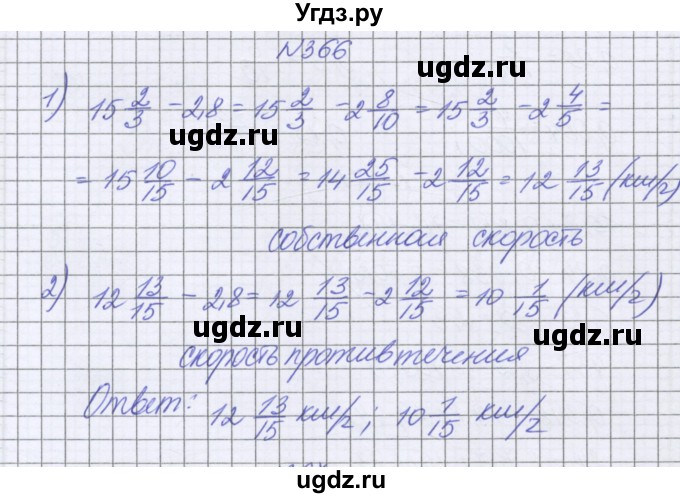 Угдз.ру
№366
ugdz.ru ugdz.ru
1) 15 2/3 - 2,8 = 15 2/3 - 2 8/10 = 15 2/3 - 2 4/5 =
ugdz.ru
= 15 10/15 - 2 12/15 = 14 25/15 - 2 12/15 = 12 13/15 (км/ч)
собственная скорость
2) 12 13/15 - 2,8 = 12 13/15 - 2 12/15 = 10 1/15 (км/ч)
ugdz.ru ugdz.ru
скорость против течения
Ответ: 12 13/15 км/ч; 10 1/15 км/ч
ugdz.ru